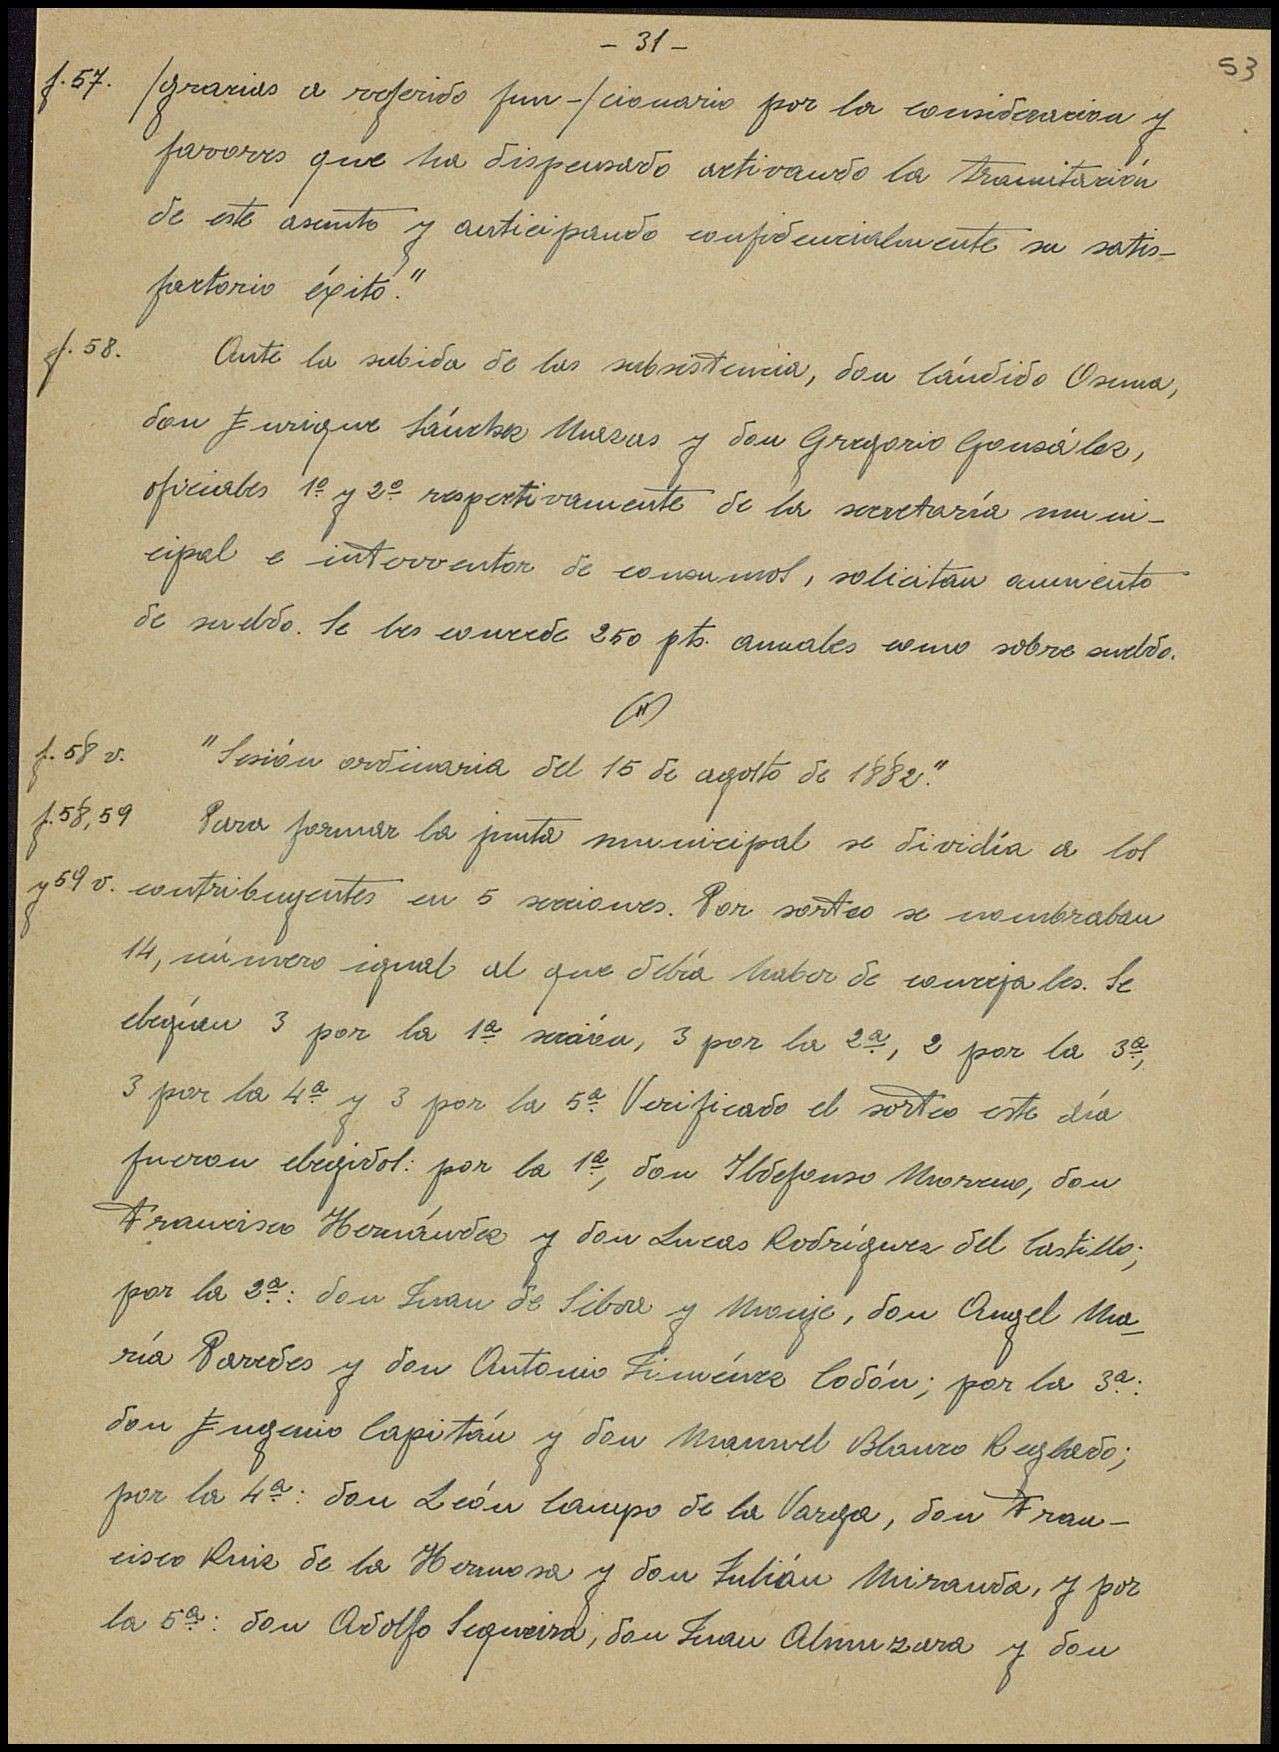 - 31 -
53
f. 57. /gracias a referido fun-/cionario por la consideracion y
favores que ha dispensado activando la tramitación
de este asunto y anticipando confidencialmente su satis-
factorio éxito."
f. 58. Ante la subida de las subsistencia, don Cándido Osuna,
don Enrique Sánchez Mazas y don Gregorio González,
oficiales 1º y 2º respectivamente de la secretaría muni-
cipal e interventor de consumos, solicitan aumento
de sueldo. Se les concede 250 pts. anuales como sobre sueldo.
(")
f. 58 v. "Sesión ordinaria del 15 de agosto de 1882."
f. 58, 59 Para formar la junta municipal se dividía a los
y 59 v. contribuyentes en 5 secciones. Por sorteo se nombraban
14, número igual al que debía haber de concejales. Se
elegían 3 por la 1ª sección, 3 por la 2ª, 2 por la 3ª,
3 por la 4ª y 3 por la 5ª. Verificado el sorteo este día
fueron elegidos: por la 1ª, don Ildefonso Moreno, don
Francisco Hernández y don Lucas Rodríguez del Castillo;
por la 2ª: don Juan de Silva y Monje, don Angel Ma-
ría Paredes y don Antonio Jiménez Codón; por la 3ª:
don Eugenio Capitán y don Manuel Blanco Reglado;
por la 4ª: don León Campo de la Varga, don Fran-
cisco Ruiz de la Hermosa y don Julián Miranda, y por
la 5ª: don Adolfo Sequeira, don Juan Almuzara y don